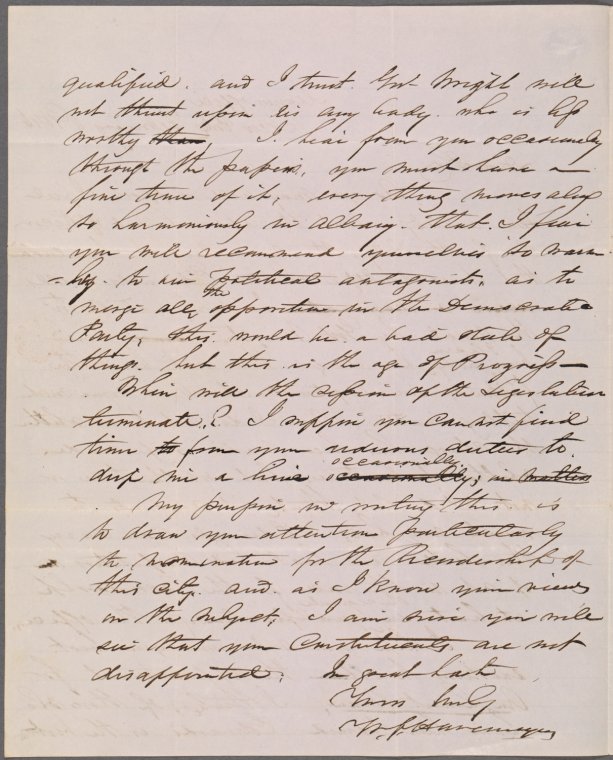 qualified. and I trust. Gov Wright will
not thrust upon us any body. who is less
worthy than, I. hear from you occasionally
through the papers, you must have a
fine time of it, every thing moves along
so harmoniously in Albany. that. I fear
you will recommend yourselves so warm
=ly. to our political antagonists, as to
merge all the opposition in the Democratic
Party, this. would be. a bad state of
things. but this. is the age of Progress—
When will the session of the Legislature
terminate,? I suppose you can not find
time to from your arduous duties to
drop me a line occasionally occasionally; on matters
My purpose in writing this is
to draw your attention particularly
to nomination for the Recordership of
this city. and. as I know your views
on the subject, I am sure you will
see that your Constituents. are not
disappointed. In great haste
Yours truly
W. F. Havemeyer